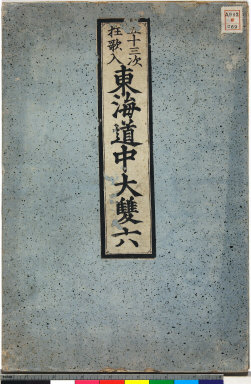 五十三次
狂歌入
東海道中大雙六